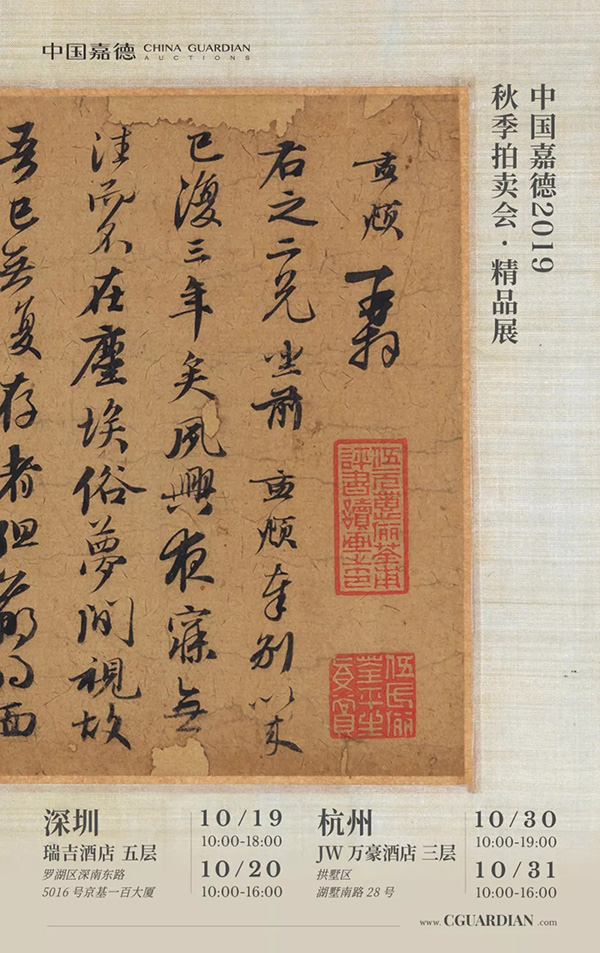 中国嘉德 CHINA GUARDIAN
AUCTIONS
中国嘉德2019
秋季拍卖会·精品展
孟頫
再拜
右之二兄坐前孟頫奉别以来
已復三年矣夙興夜寐無
注而不在塵埃俗夢間視故
吾已无复存者但
面
伍氏儷荃平生真賞
深圳
瑞吉酒店 五层
罗湖区深南东路
5016 号京基一百大厦
10/19
10:00-18:00
10/20
10:00-16:00
杭州
JW 万豪酒店 三层
拱墅区
湖墅南路 28 号
10/30
10:00-19:00
10/31
10:00-16:00
www.CGUARDIAN.com